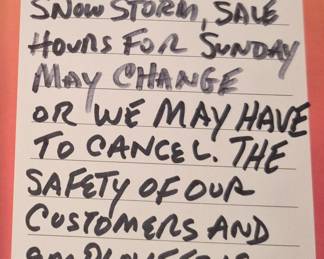 SNOW STORM, SALE
HOURS FOR SUNDAY
MAY CHANGE
OR WE MAY HAVE
TO CANCEL. THE
SAFETY OF OUR
CUSTOMERS AND